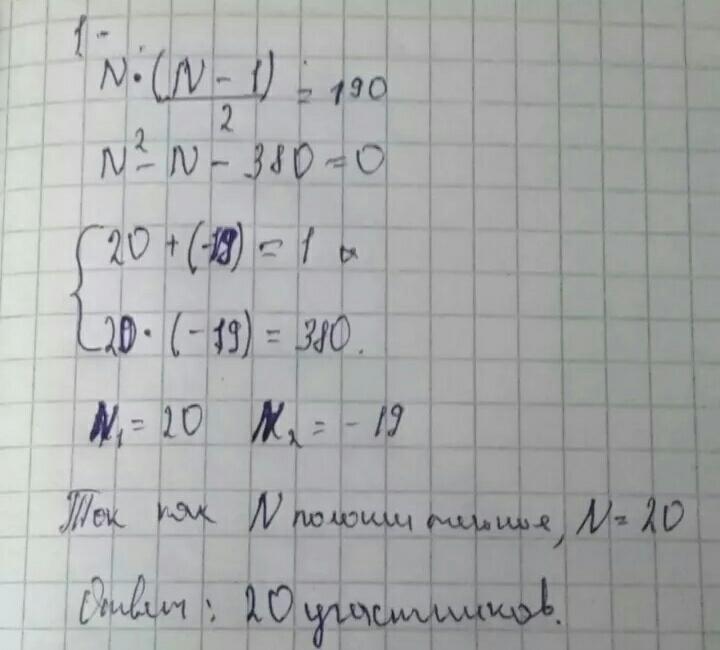 1-
N·(N-1)/2 = 190
N²-N-380=0
20+(-19)=1 и
20·(-19)=380.
N₁=20 N₂=-19
Так как N положительное, N=20
Ответ: 20 участников.